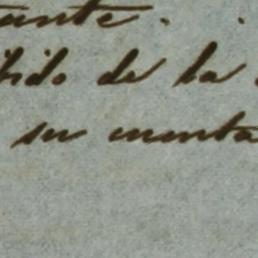 ante.
bido de la
su cuenta